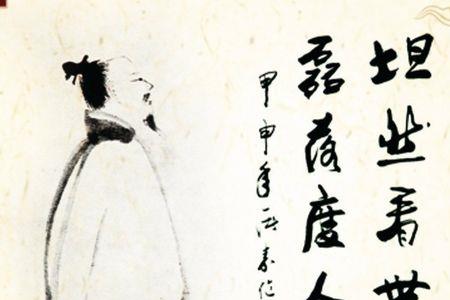 坦然看世
磊落度人
甲申年